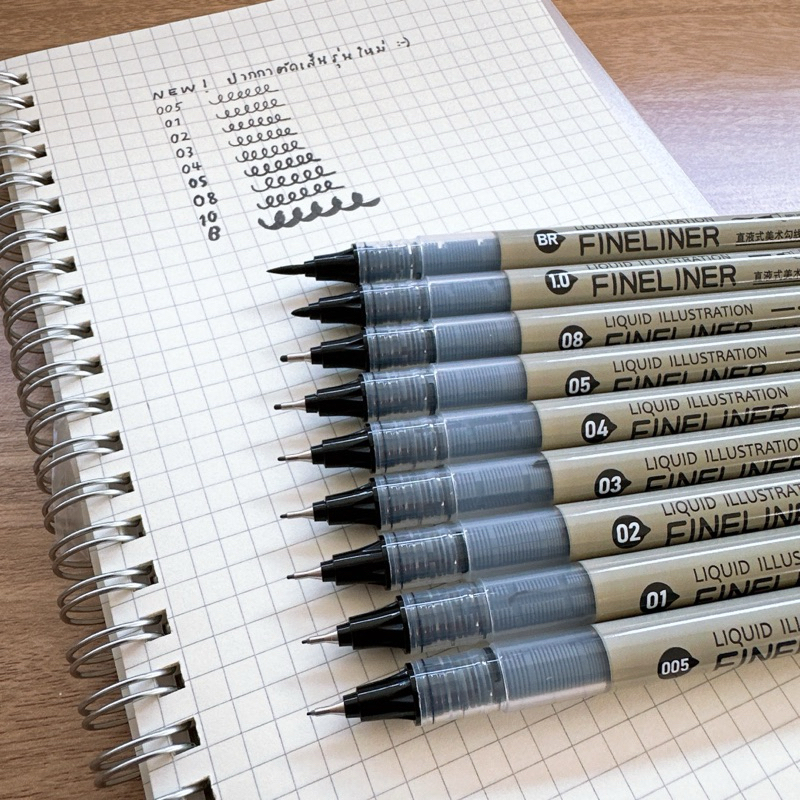 NEW! ปากกาตัดเส้นรุ่นใหม่ :-)
005
01
02
03
04
05
08
10
B
BR LIQUID ILLUSTRATION
FINELINER 直液式美术勾线
1.0 LIQUID ILLUSTRATION
FINELINER 直液式美术
08 LIQUID ILLUSTRATION
FINELINER
05 LIQUID ILLUSTRATION
FINELINER
04 LIQUID ILLUSTRATION
FINELINER
03 LIQUID ILLUSTRATION
FINELINER
02 LIQUID ILLUSTRAT
FINELINE
01 LIQUID ILLUS
FINELIN
005 LIQUID ILL
FINEL